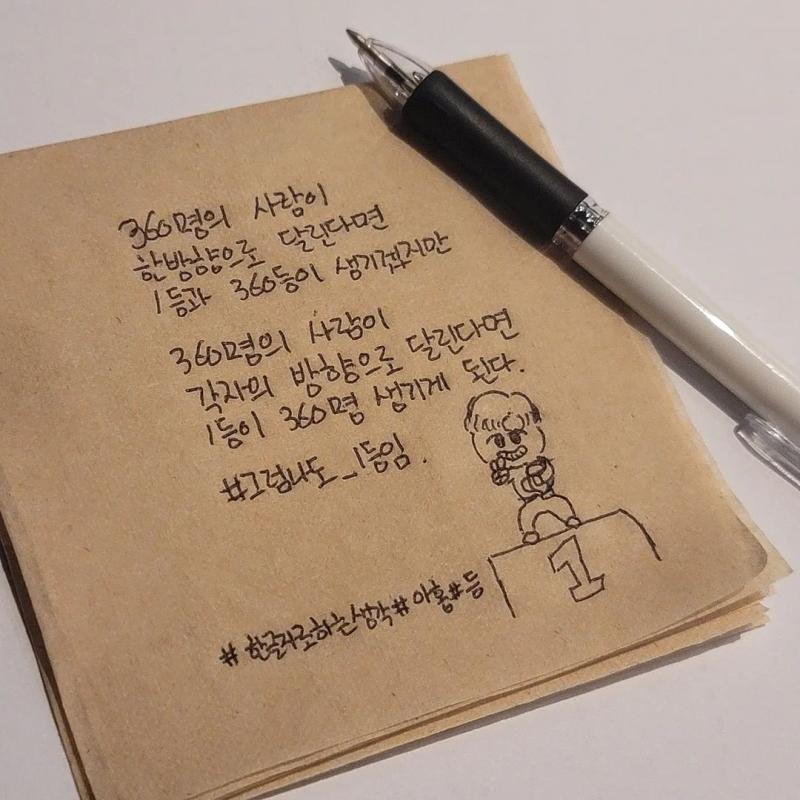 360명의 사람이
한방향으로 달린다면
1등과 360등이 생기겠지만
360명의 사람이
각자의 방향으로 달린다면
1등이 360명 생기게 된다.
#그럼나도_1등임.
1
#한글자로하는생각#아홍#등